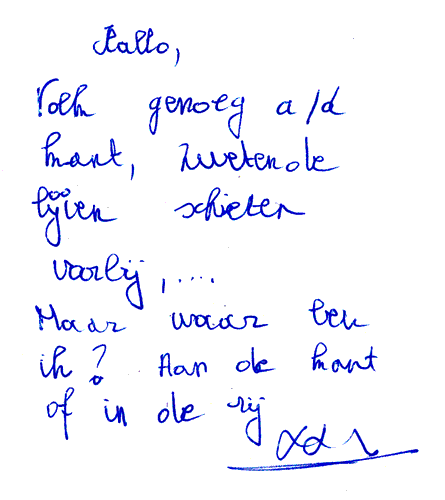 Hallo,
Volk genoeg a/d
kant, zwetende
lijven schieten
voorbij, ....
Maar waar ben
ik? Aan de kant
of in de rij